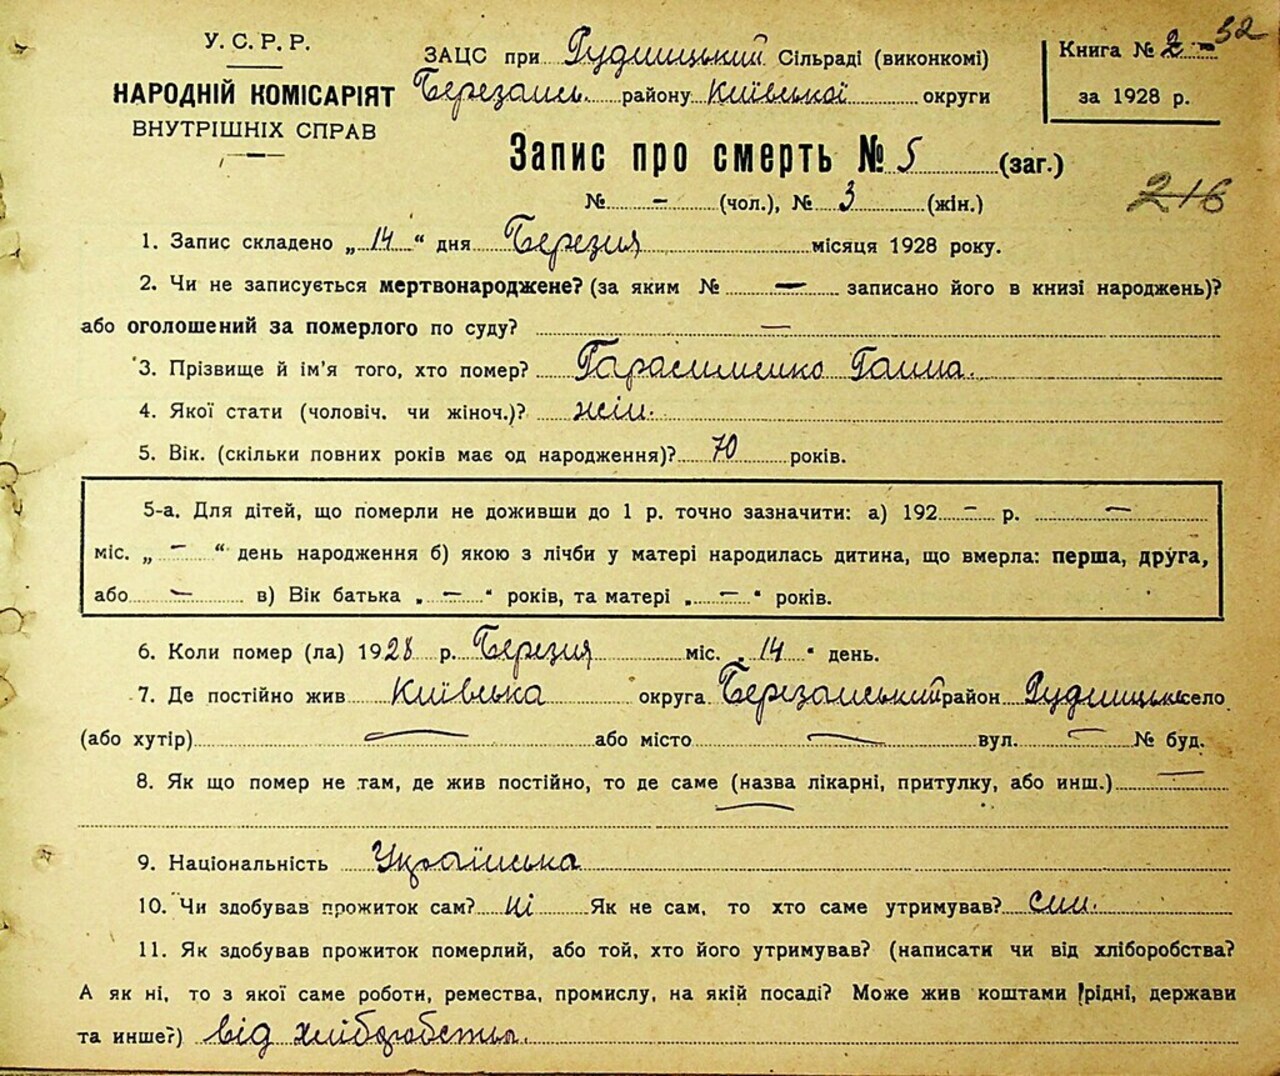 У. С. Р. Р.
НАРОДНІЙ КОМІСАРІЯТ
ВНУТРІШНІХ СПРАВ
ЗАЦС при Рудницький Сільраді (виконкомі)
Березансь. району Київської округи
Книга № 2 - 32
за 1928 р.
Запис про смерть № 5 (заг.)
№ - (чол.), № 3 (жін.)
216
1. Запис складено „ 14 “ дня Березня місяця 1928 року.
2. Чи не записується мертвонароджене? (за яким № — записано його в книзі народжень)?
або оголошений за померлого по суду? —
3. Прізвище й ім'я того, хто помер? Гарасименко Ганна.
4. Якої стати (чоловіч. чи жіноч.)? жін.
5. Вік. (скільки повних років має од народження)? 70 років.
5-а. Для дітей, що померли не доживши до 1 р. точно зазначити: а) 192 — р. —
міс. „ — “ день народження б) якою з лічби у матері народилась дитина, що вмерла: перша, друга,
або — в) Вік батька „ — “ років, та матері „ — “ років.
6. Коли помер (ла) 1928 р. Березня міс. „ 14 “ день.
7. Де постійно жив Київська округа Березанський район Рудницьке село
(або хутір) — або місто — вул. — № буд.
8. Як що помер не там, де жив постійно, то де саме (назва лікарні, притулку, або инш.) —
9. Національність Українська
10. Чи здобував прожиток сам? ні Як не сам, то хто саме утримував? син.
11. Як здобував прожиток померлий, або той, хто його утримував? (написати чи від хліборобства?
А як ні, то з якої саме роботи, ремества, промислу, на якій посаді? Може жив коштами рідні, держави
та инше?) від хліборобства.